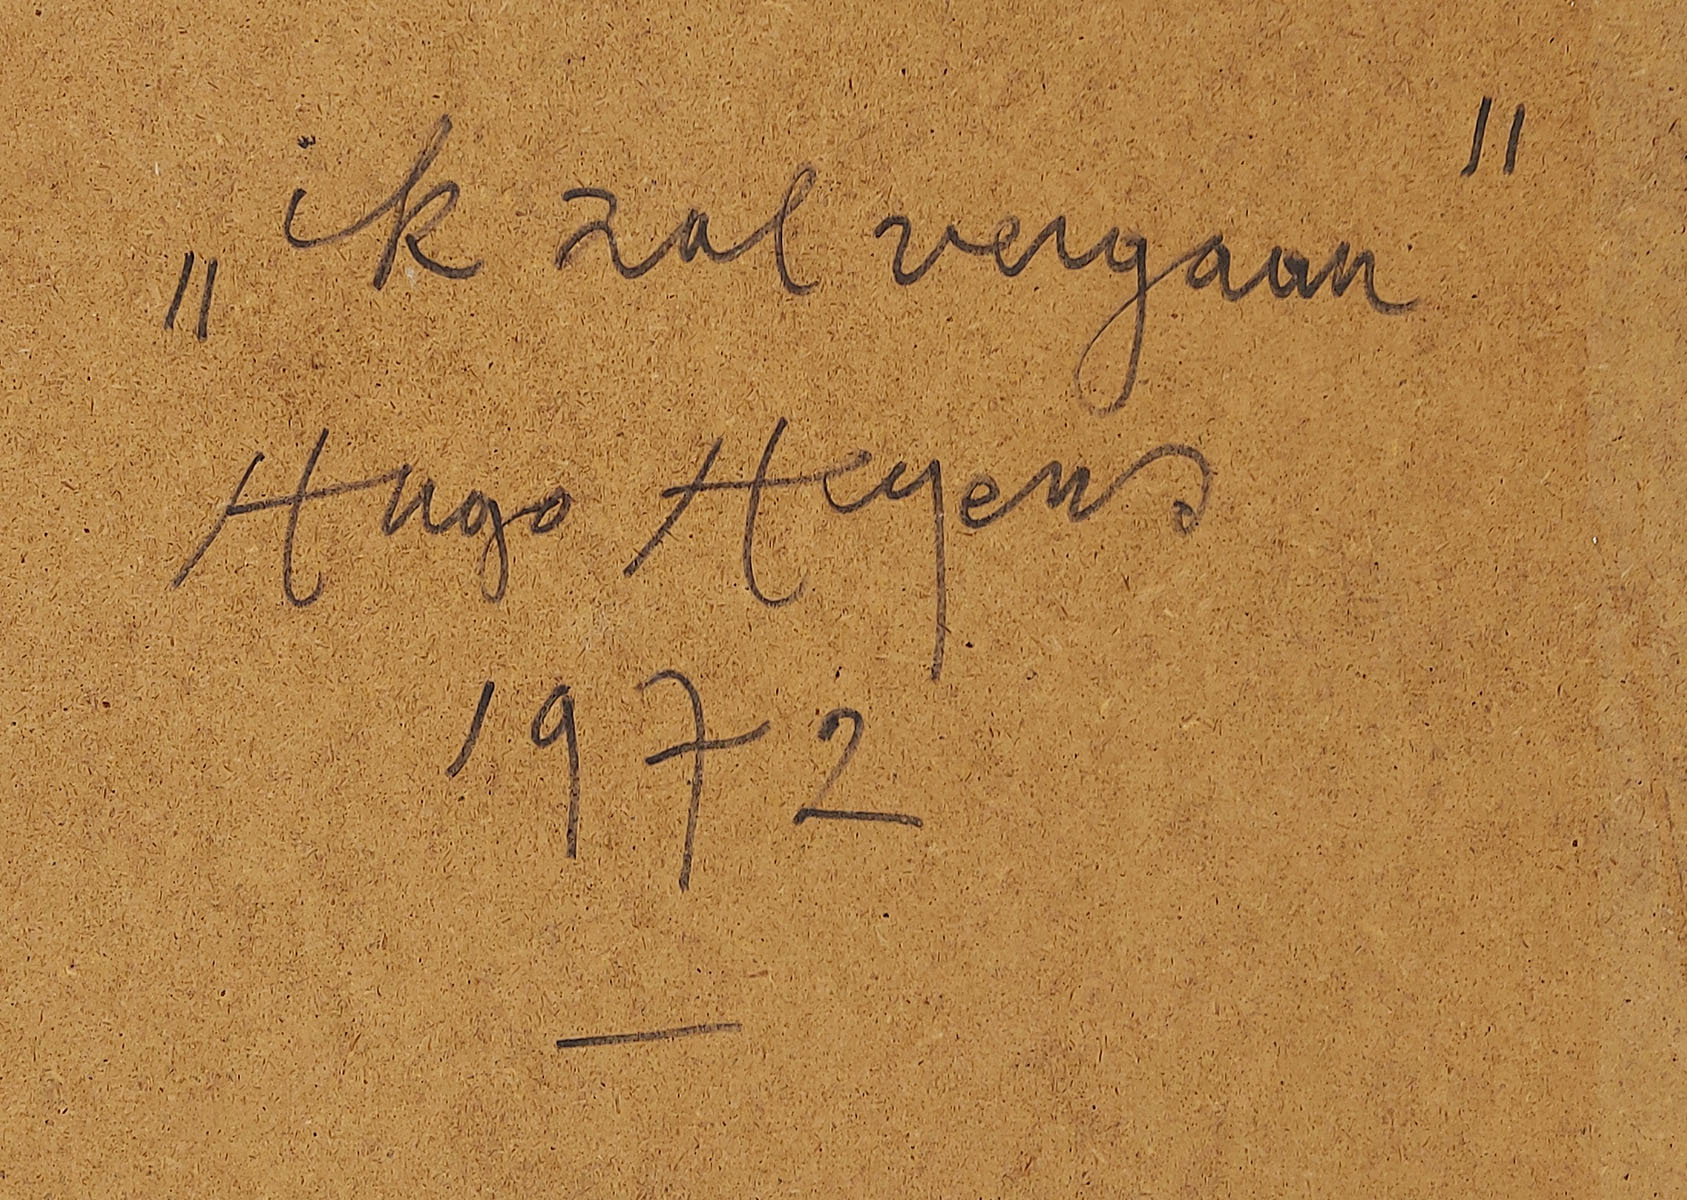 „ik zal vergaan"
Hugo Heyens
1972